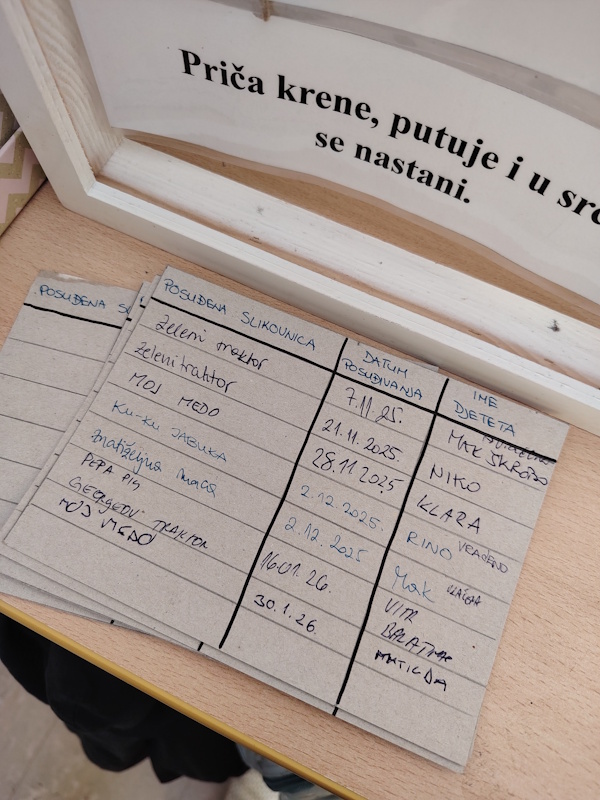 Priča krene, putuje i u src
se nastani.
POSUĐENA
POSUĐENA SLIKOVNICA
DATUM POSUĐIVANJA
IME DJETETA
Zeleni traktor 7.11.25. MAK ŠKROBO
Zeleni traktor 21.11.2025. NIKO
MOJ MEDO 28.11.2025 KLARA
KU-KU JABUKA 2.12.2025. RINO VRAĆENO
znatiželjna maca 2.12.2025 Mak
PEPA PIG
GEORGEOV TRAKTOR 16.01.26. VITA
MOJ MEDO 30.1.26. MATILDA